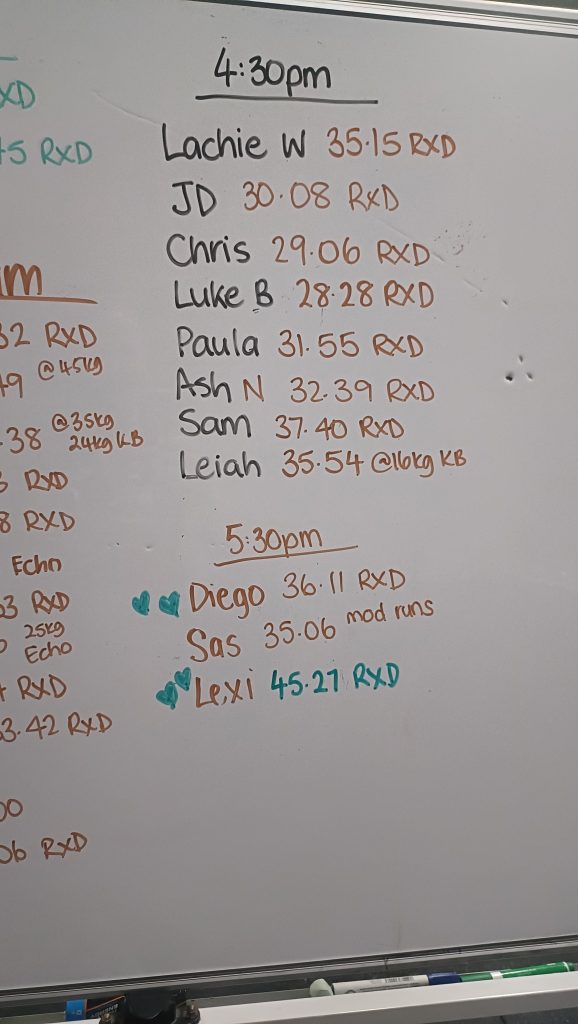 XD
45 RXD
m
32 RXD
49 @45kg
.38 @35kg
24kg KB
3 RXD
8 RXD
Echo
53 RXD
25kg
Echo
RXD
3.42 RXD
00
06 RXD
4:30pm
Lachie W 35.15 RXD
JD 30.08 RXD
Chris 29.06 RXD
Luke B 28.28 RXD
Paula 31.55 RXD
Ash N 32.39 RXD
Sam 37.40 RXD
Leiah 35.54 @16kg KB
5:30pm
Diego 36.11 RXD
Sas 35.06 mod runs
Lexi 45.27 RXD